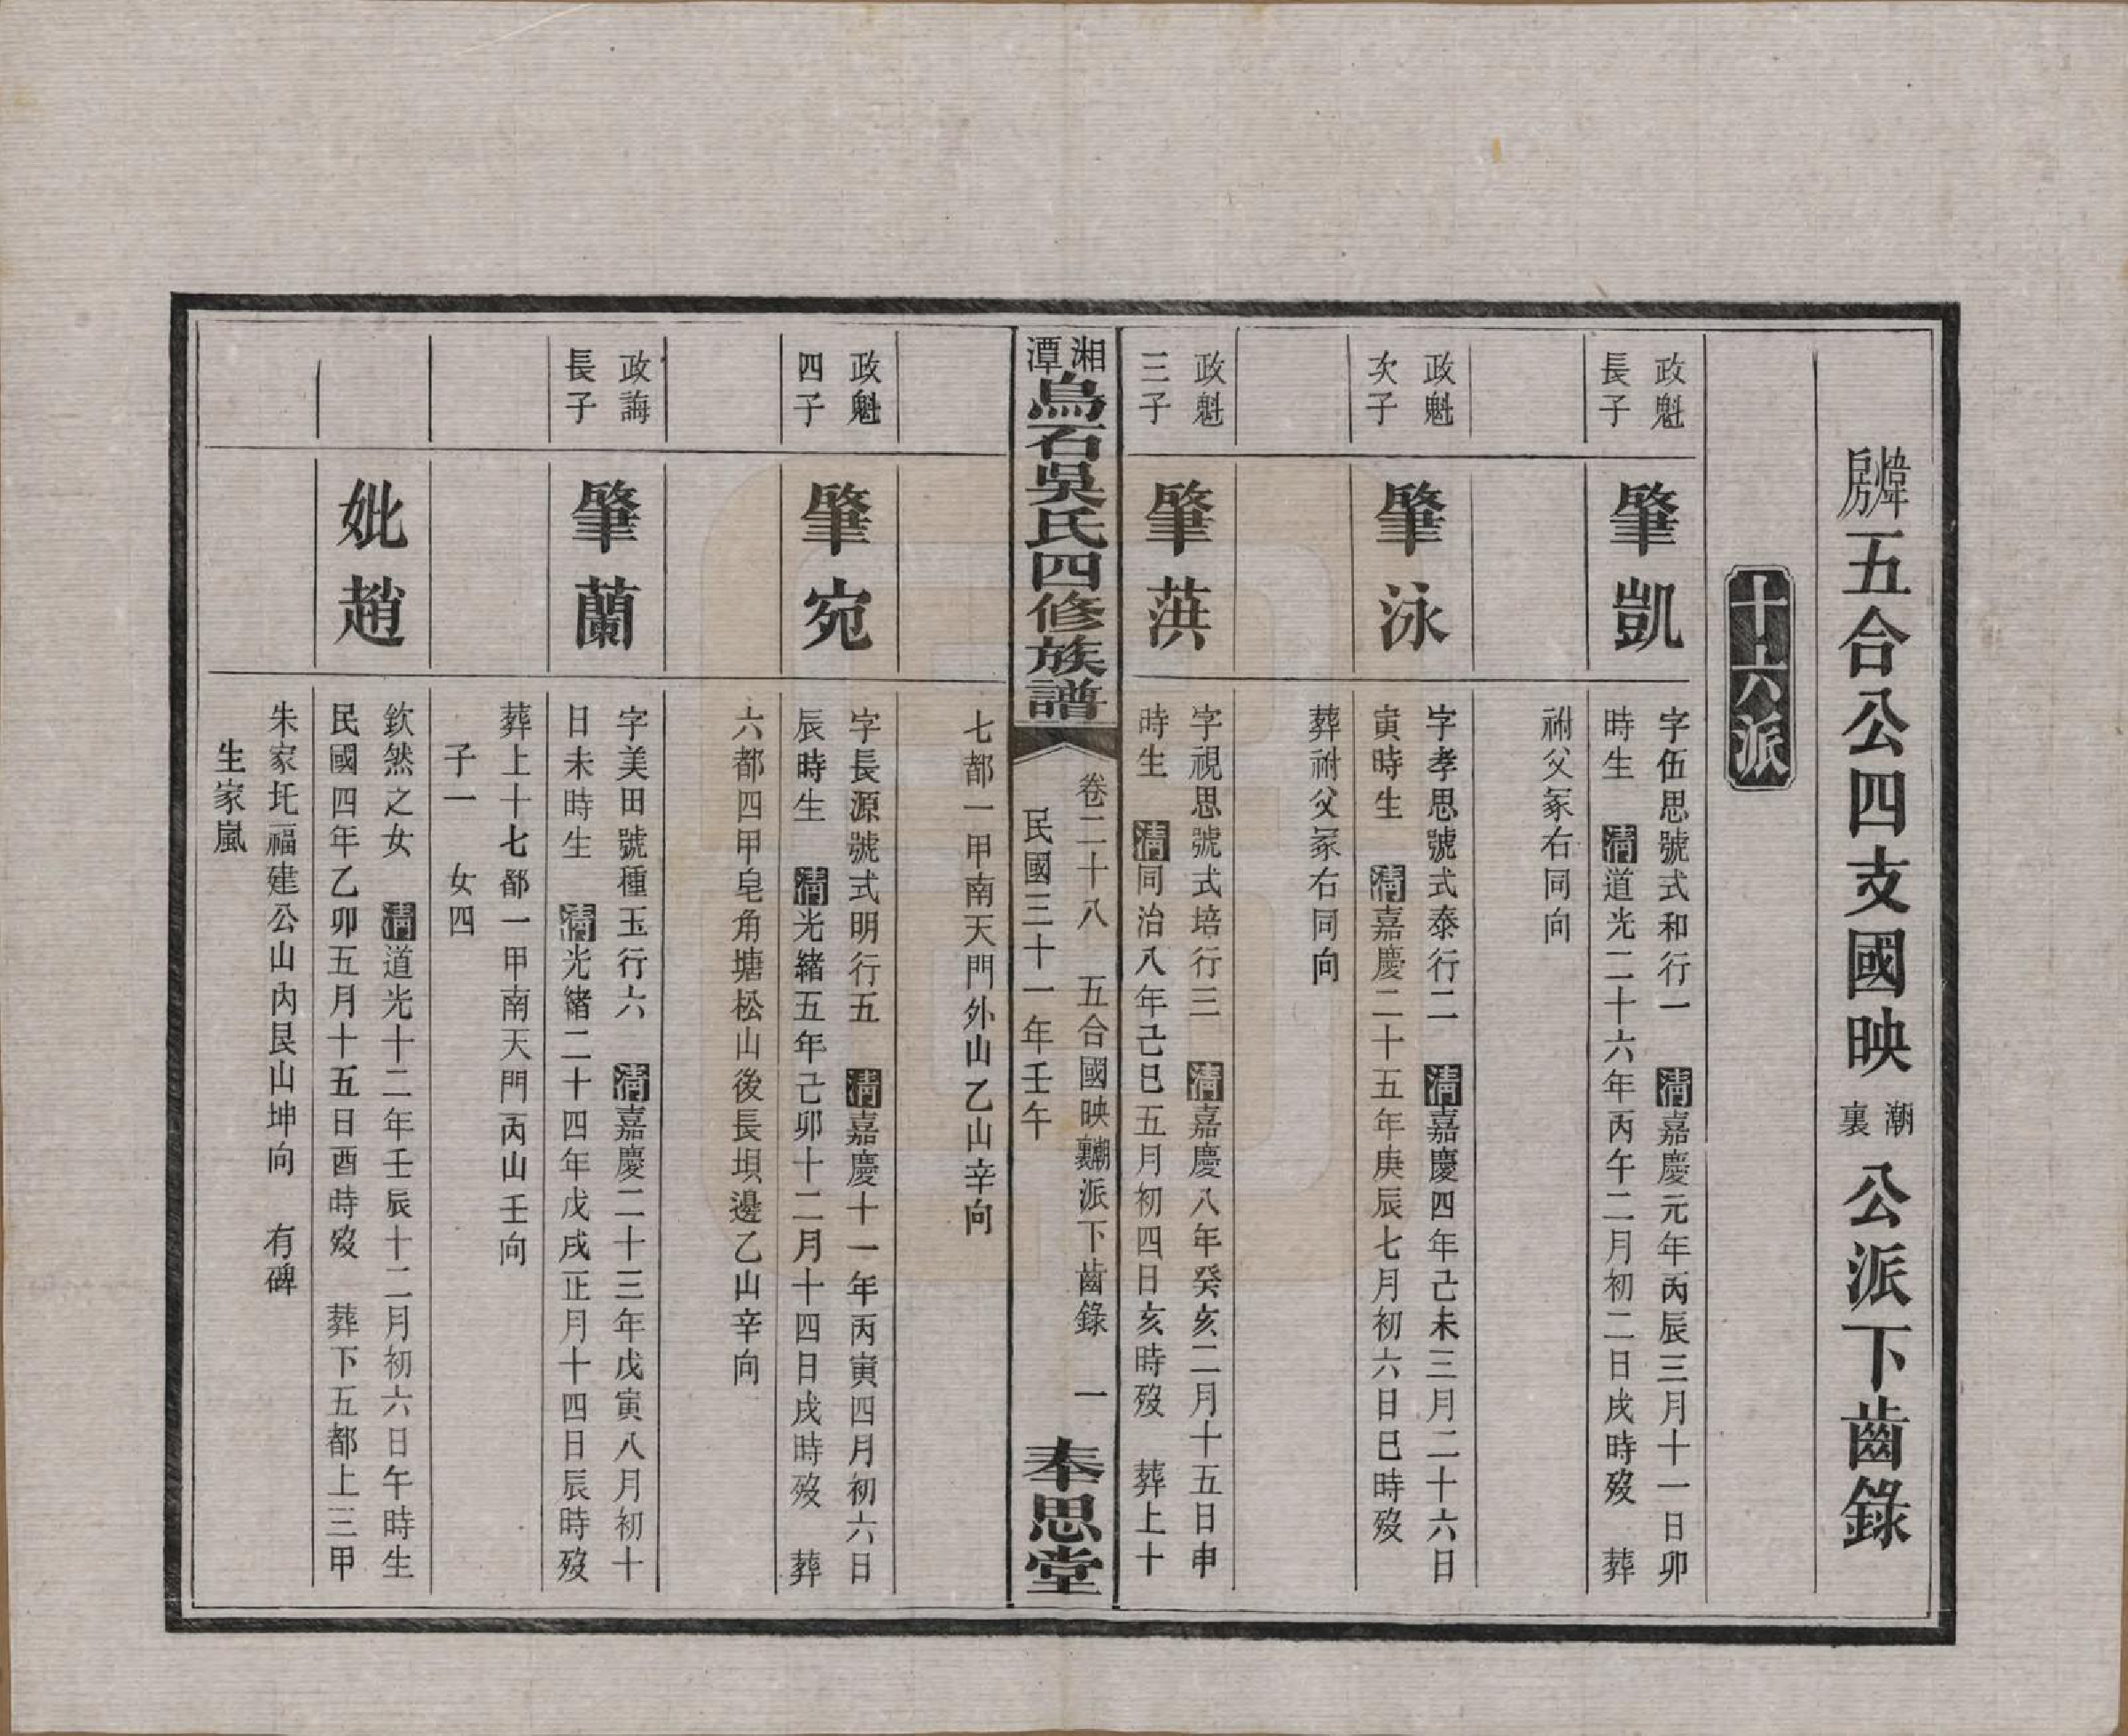 煒房五合公四支國映潮裏公派下齒錄
十六派
政魁
長子
肇凱
字伍思號式和行一　清嘉慶元年丙辰三月十一日卯
時生　清道光二十六年丙午二月初二日戌時歿　葬
祔父冢右同向
政魁
次子
肇泳
字孝思號式泰行二　清嘉慶四年己未三月二十六日
寅時生　清嘉慶二十五年庚辰七月初六日巳時歿
葬祔父冢右同向
政魁
三子
肇葓
字視思號式培行三　清嘉慶八年癸亥二月十五日申
時生　清同治八年己巳五月初四日亥時歿　葬上十
湘潭烏石吳氏四修族譜
卷二十八　五合國映潮裏派下齒錄　一
民國三十一年壬午
奉思堂
七都一甲南天門外山乙山辛向
政魁
四子
肇宛
字長源號式明行五　清嘉慶十一年丙寅四月初六日
辰時生　清光緒五年己卯十二月十四日戌時歿　葬
六都四甲皂角塘松山後長垻邊乙山辛向
政誨
長子
肇蘭
字美田號種玉行六　清嘉慶二十三年戊寅八月初十
日未時生　清光緒二十四年戊戌正月十四日辰時歿
葬上十七都一甲南天門丙山壬向
子一　女四
妣趙
欽然之女　清道光十二年壬辰十二月初六日午時生
民國四年乙卯五月十五日酉時歿　葬下五都上三甲
朱家圫福建公山內艮山坤向　有碑
生家嵐